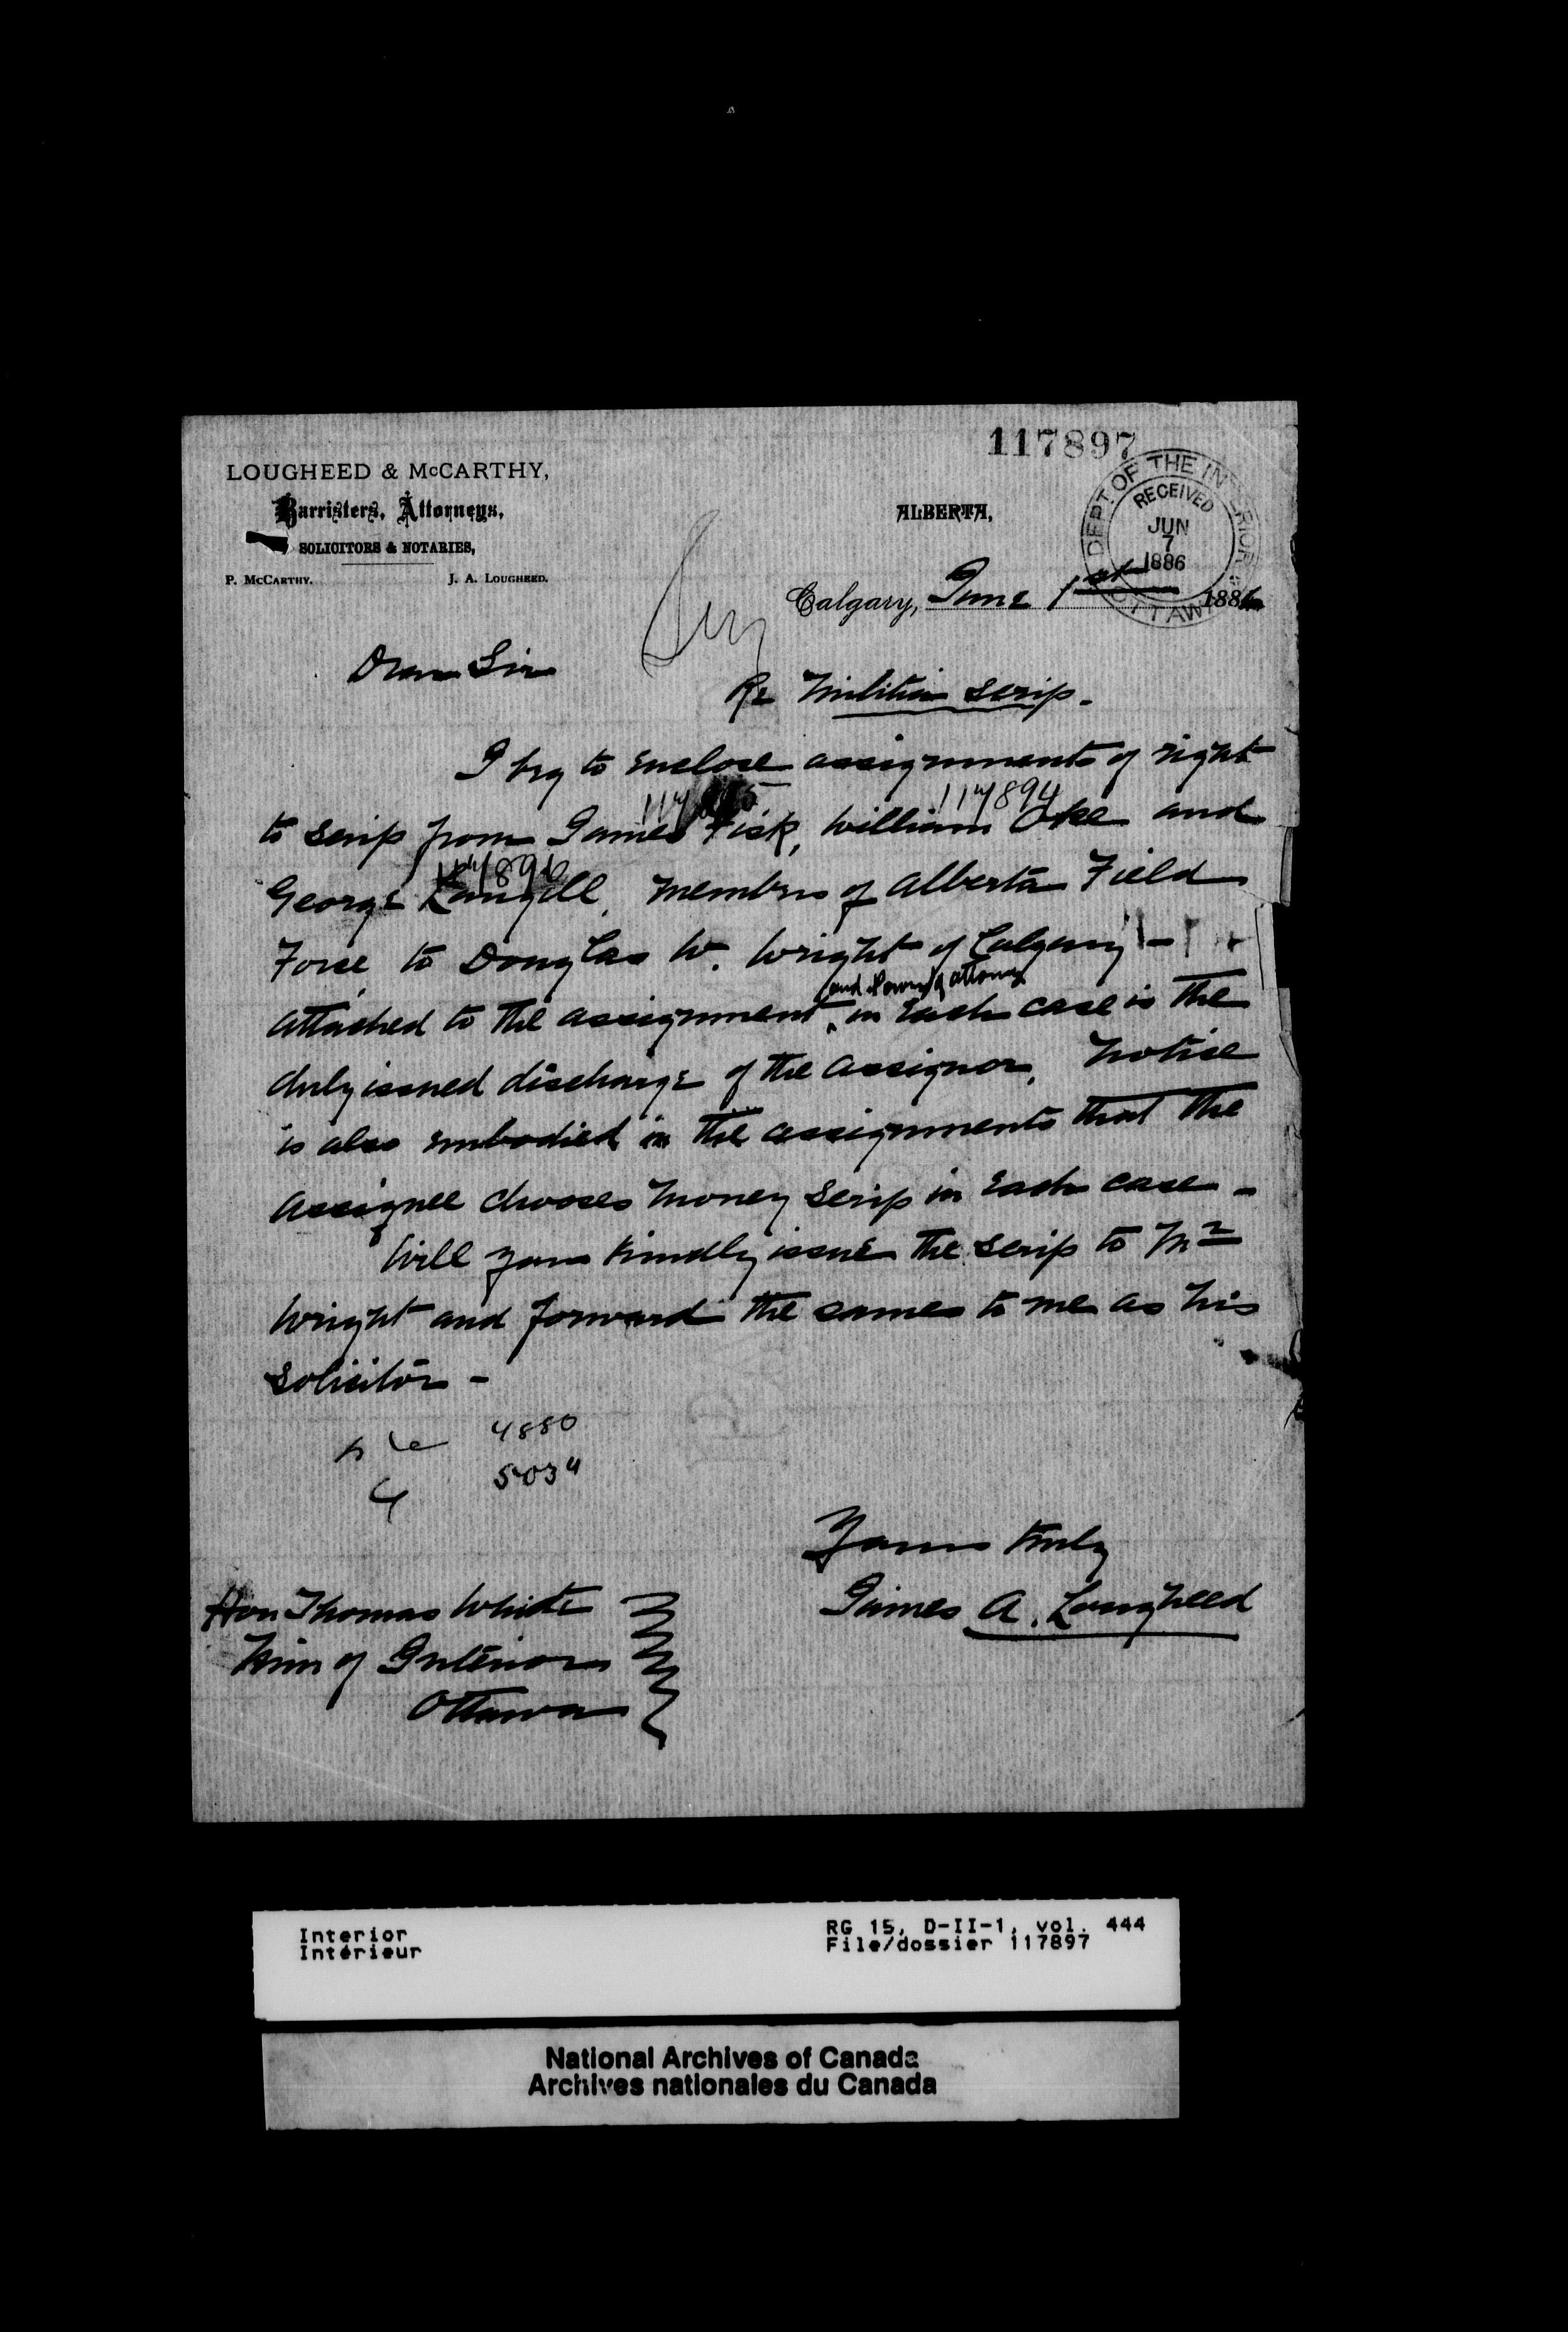 117897
LOUGHEED & McCARTHY,
Barristers, Attorneys,
SOLICITORS & NOTARIES,
P. McCARTHY. J. A. LOUGHEED.
ALBERTA,
DEPT. OF THE INTERIOR
RECEIVED
JUN
7
1886
OTTAWA
Calgary, June 1st 1886
Dear Sir
Re Militia Scrip.
I beg to enclose assignments of right
117895 117894
to scrip from James Fisk, William Oke and
117896
George Langill, members of Alberta Field
Force to Douglas W. Wright of Calgary -
and Power of attorney
attached to the assignment in each case is the
duly issued discharge of the assignor. Notice
is also embodied in the assignments that the
assignee chooses money scrip in each case -
Will you kindly issue the scrip to Mr
Wright and forward the same to me as his
solicitor -
4880
5034
Yours truly
James A. Lougheed
Hon Thomas White
Min of Interior
Ottawa
Interior
Intérieur
RG 15, D-II-1, vol. 444
File/dossier 117897
National Archives of Canada
Archives nationales du Canada